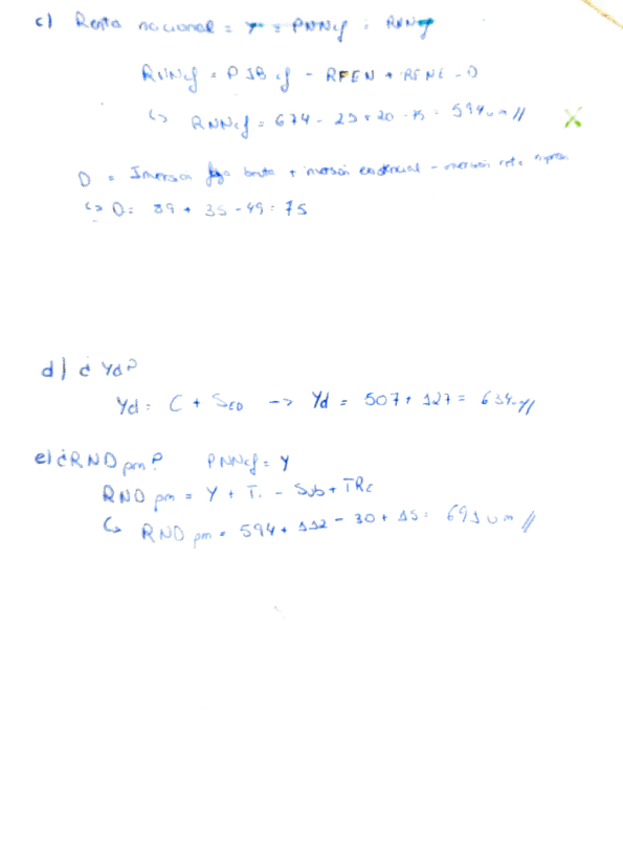 c) Renta nacional = Y = PNNcf = RNNcf
RNNcf = PIBcf - RFEN + RFNE - D
↳ RNNcf = 674 - 25 + 20 - 75 = 594 um //
D = Inversión fija bruta + inversión existencial - inversión neta
↳ D = 89 + 35 - 49 = 75
d) ¿Yd?
Yd = C + SED -> Yd = 507 + 127 = 634 um //
e) ¿RND pm? PNNcf = Y
RND pm = Y + Ti - Sub + TRc
↳ RND pm = 594 + 112 - 30 + 15 = 691 um //